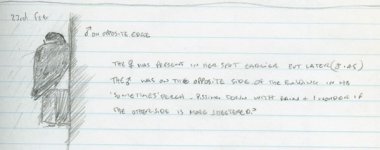 22nd Feb
♂ ON OPPOSITE EDGE
THE ♀ WAS PRESENT IN HER SPOT EARLIER BUT LATER (3.45)
THE ♂ WAS ON THE OPPOSITE SIDE OF THE BUILDING IN HIS
'SOMETIMES' PERCH. PISSING DOWN WITH RAIN & I WONDER IF
THE OTHERSIDE IS MORE SHELTERED?